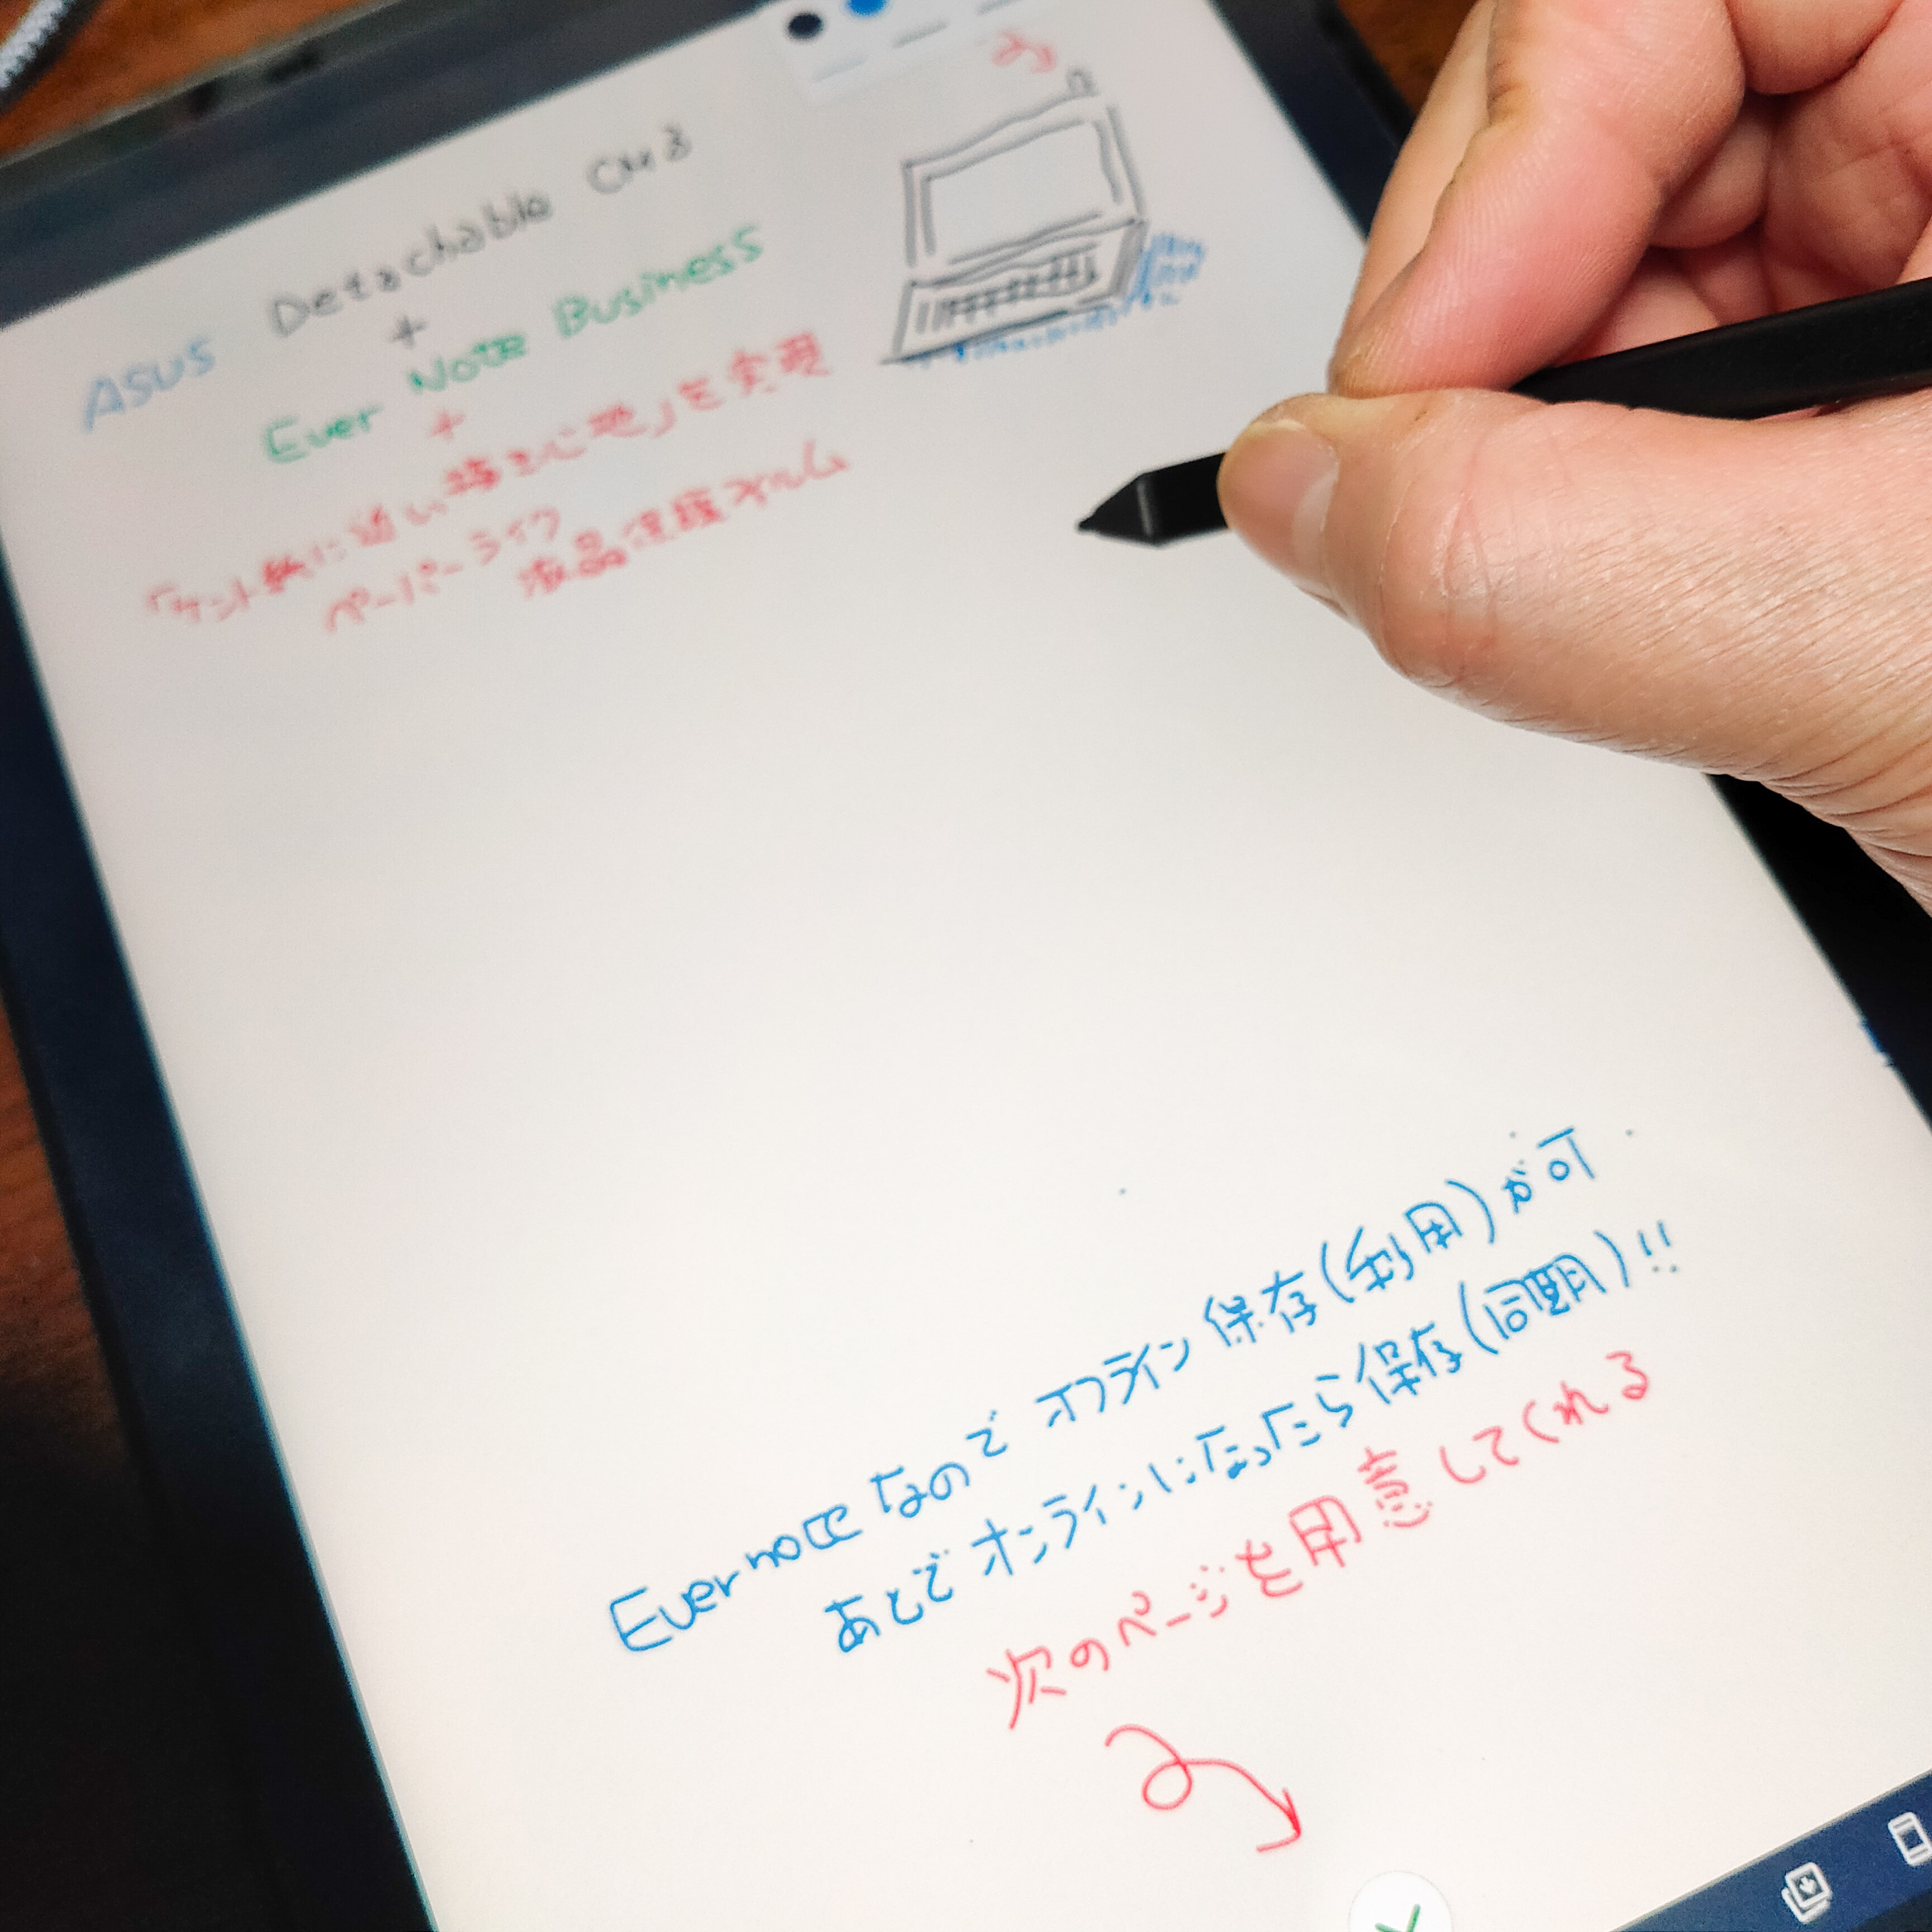 ASUS Detachable CM3
+
Ever Note Business
+
「ケント紙に近い描き心地」を実現
ペーパーライク
液晶保護フィルム
Evernoteなので オフライン保存(利用)が可
あとでオンラインになったら保存(同期)!!
次のページを用意してくれる